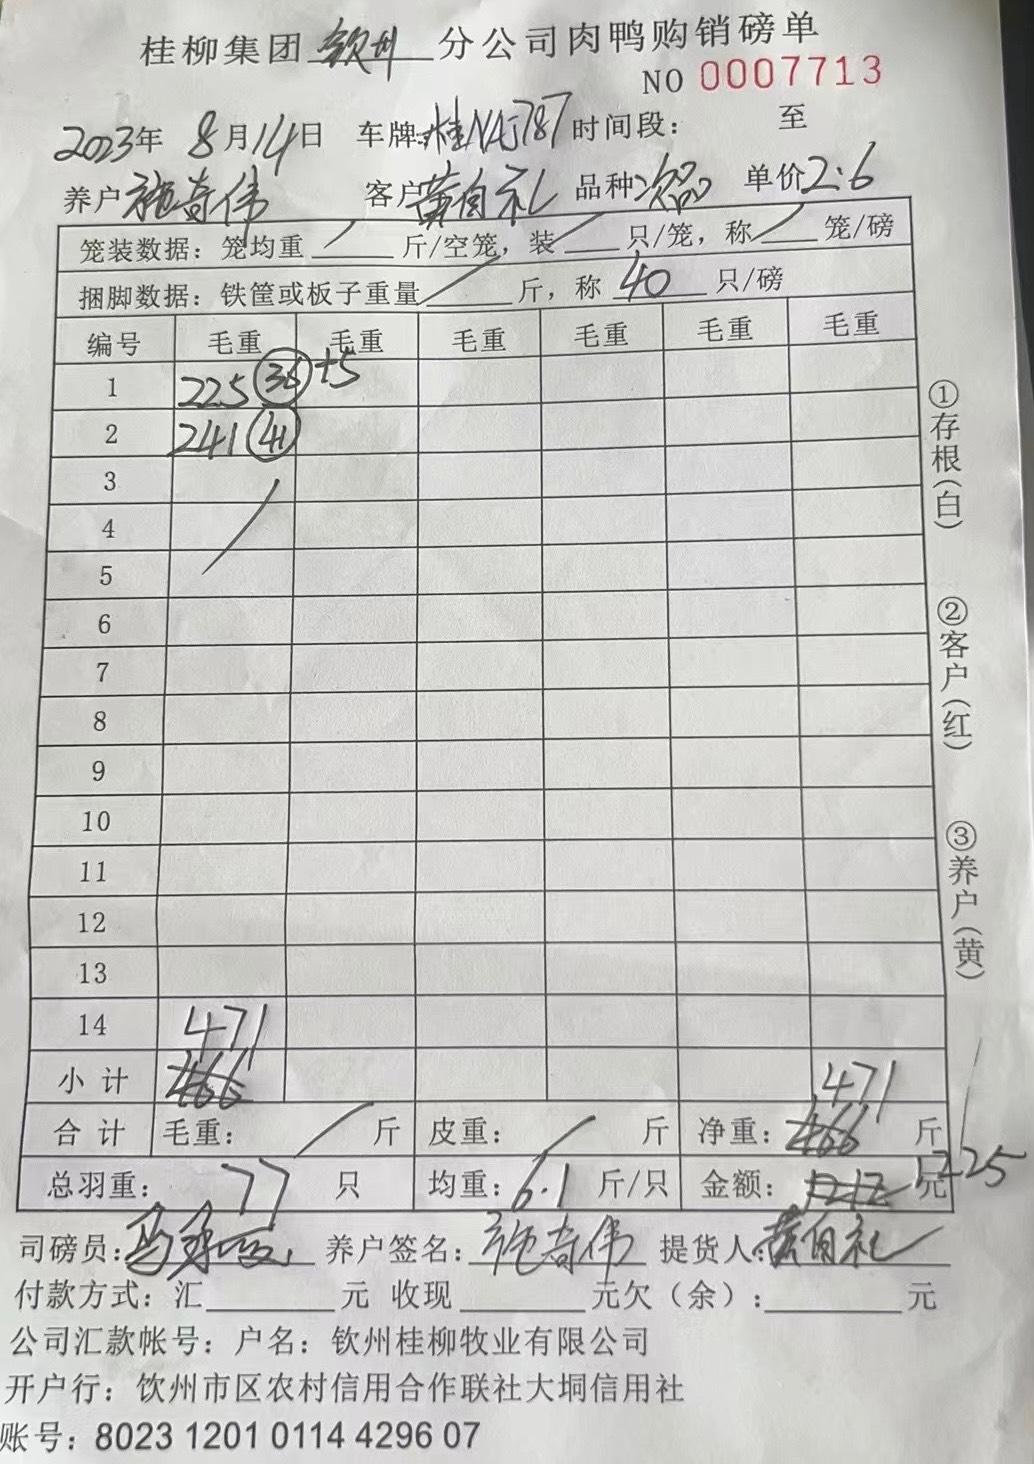 桂柳集团钦州分公司肉鸭购销磅单
NO 0007713
2023年 8月14日 车牌:桂NAJ787 时间段: 至
养户施春伟 客户黄自礼 品种次品 单价2.6
笼装数据:笼均重 / 斤/空笼,装 / 只/笼,称 / 笼/磅
捆脚数据:铁筐或板子重量 / 斤,称 40 只/磅
编号 毛重 毛重 毛重 毛重 毛重 毛重
1 225 (36) +5
2 241 (41)
3
4
5
6
7
8
9
10
11
12
13
14 471
小计 466 471
合计 毛重: / 斤 皮重: / 斤 净重: 466 斤
总羽重: 77 只 均重: 6.1 斤/只 金额: 1212 元 1225
司磅员: 养户签名:施春伟 提货人:黄自礼
付款方式:汇 元 收现 元欠(余): 元
公司汇款帐号:户名:钦州桂柳牧业有限公司
开户行:饮州市区农村信用合作联社大垌信用社
账号:8023 1201 0114 4296 07
①存根(白)
②客户(红)
③养户(黄)